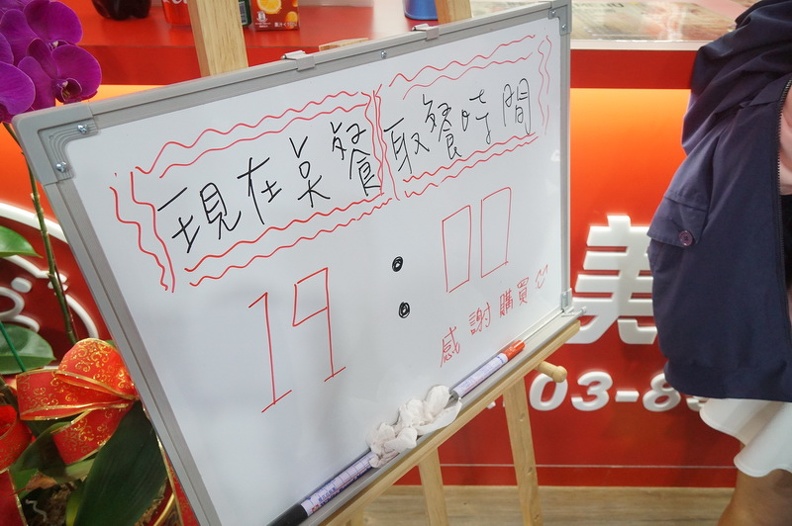 現在點餐 取餐時間
19:00
感謝購買
美
03-8